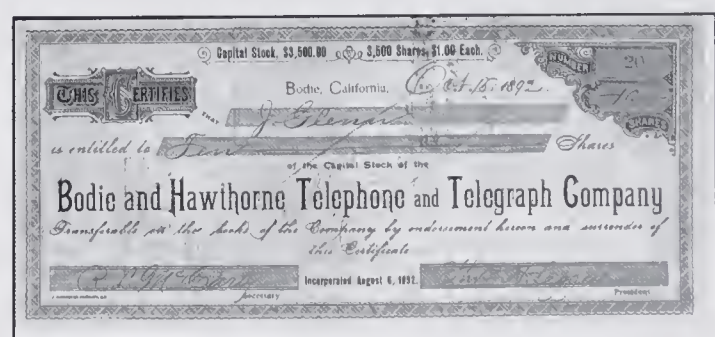 Capital Stock, $3,500.00 3,500 Shares, $1.00 Each.
NUMBER 20
THIS CERTIFIES
Bodie, California, Oct. 15, 1892.
THAT J. Glenn
is entitled to Ten Shares
SHARES
of the Capital Stock of the
Bodie and Hawthorne Telephone and Telegraph Company
Transferable on the books of the Company by endorsement hereon and surrender of
this Certificate
Incorporated August 6, 1892.
Secretary President